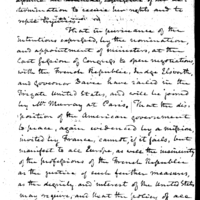 mination to secure her rights and to
repel
That in pursuance of her
intentions expressed by the nomination,
and appointment of ministers, at the
last session of Congress to open negotiations
with the French Republic, Judge Elsworth,
and Governor Davie have sailed in the
Frigate United States, and will be joined
by Mr Murray at Paris. That the dis-
position of the American government
to peace, again evidenced by a mission
invited by France, cannot, if it fails, but
manifest to all Europe, as well the insincerity
of the professions of the French Republic
as the justice of such further measures,
as the dignity and interest of the United States
may require, and that the